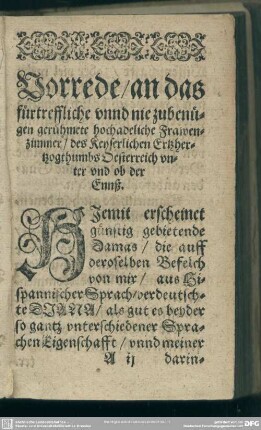 Vorrede/an das
fürtreffliche vnnd nie zubenü-
gen gerühmete hochadeliche Frawen-
zimmer/des Keyserlichen Ertzher-
tzogthumbs Oesterreich vn-
ter vnd ob der
Ennß.
HJemit erscheinet
günstig gebietende
Damas/die auff
deroselben Befelch
von mir/aus Hi-
spannischer Sprach/verdeutsch-
te DIANA/als gut es beyder
so gantz vnterschiedener Spra-
chen Eigenschafft/vnnd meiner
A ij darin-
DFG